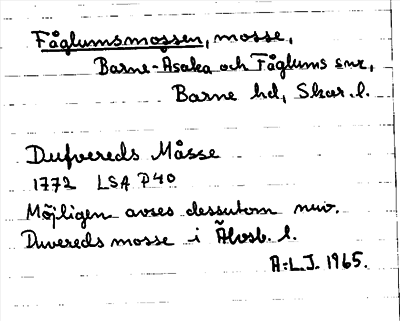 Fåglumsmossen, mosse,
Barne-Åsaka och Fåglums snr,
Barne hd, Skar. l.
Dufvereds Måsse
1772 LSA P40
Möjligen avses dessutom nuv.
Duvereds mosse i Älvsb. l.
A:L.J. 1965.